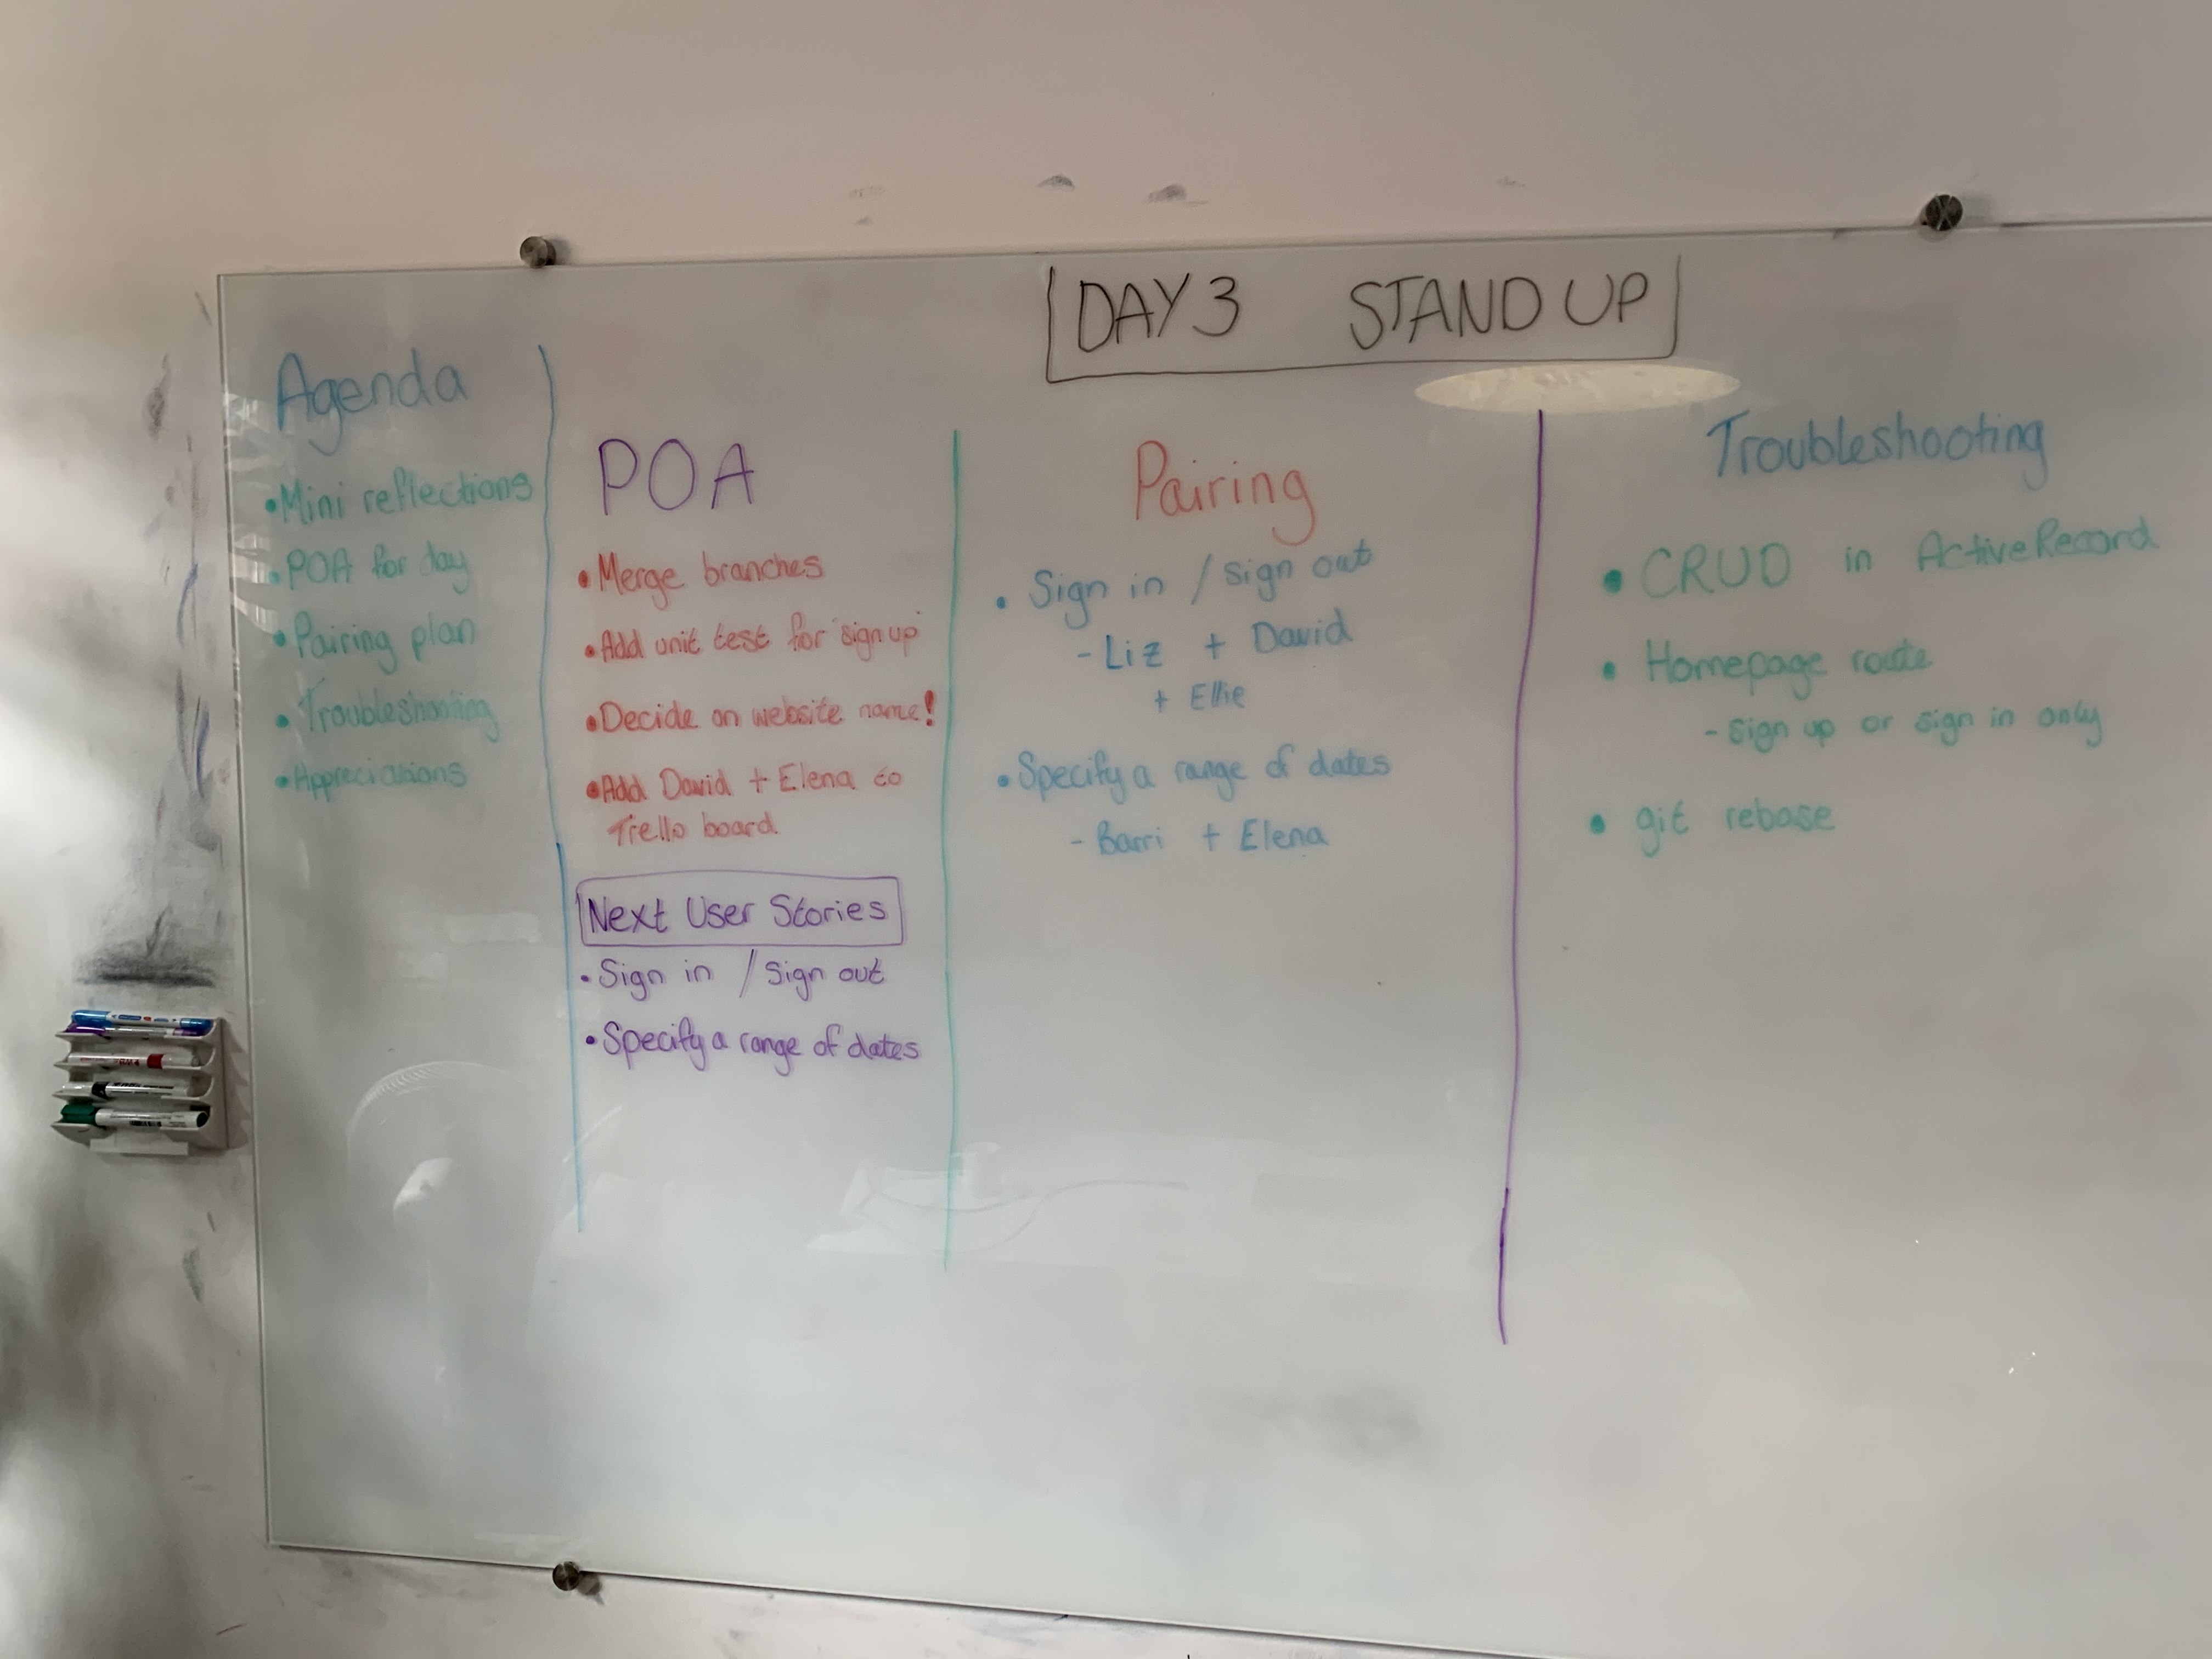 DAY 3 STAND UP
Agenda
• Mini reflections
• POA for day
• Pairing plan
• Troubleshooting
• Appreciations
POA
• Merge branches
• Add unit test for 'sign up'
• Decide on website name!
• Add David + Elena to
Trello board
Next User Stories
• Sign in / Sign out
• Specify a range of dates
Pairing
• Sign in / sign out
- Liz + David
+ Ellie
• Specify a range of dates
- Barri + Elena
Troubleshooting
• CRUD in ActiveRecord
• Homepage route
- sign up or sign in only
• git rebase